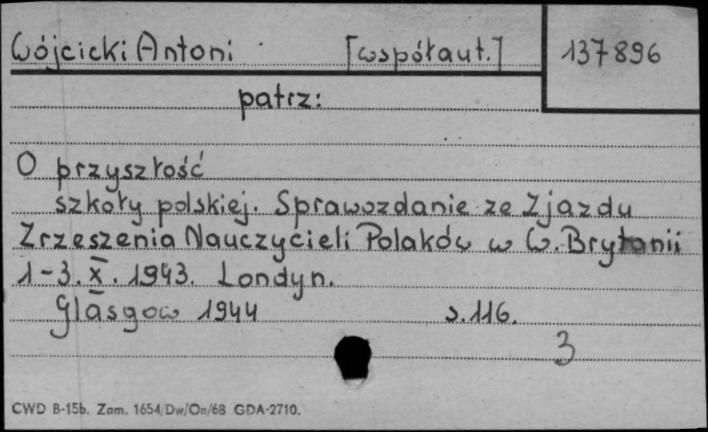 Wójcicki Antoni [współaut.] 137896
patrz:
O przyszłość
szkoły polskiej. Sprawozdanie ze Zjazdu
Zrzeszenia Nauczycieli Polaków w W. Brytanii
1-3. X. 1943. Londyn.
Glasgow 1944 s. 116.
3
CWD B-15b. Zam. 1654/Dw/On/68 GDA-2710.